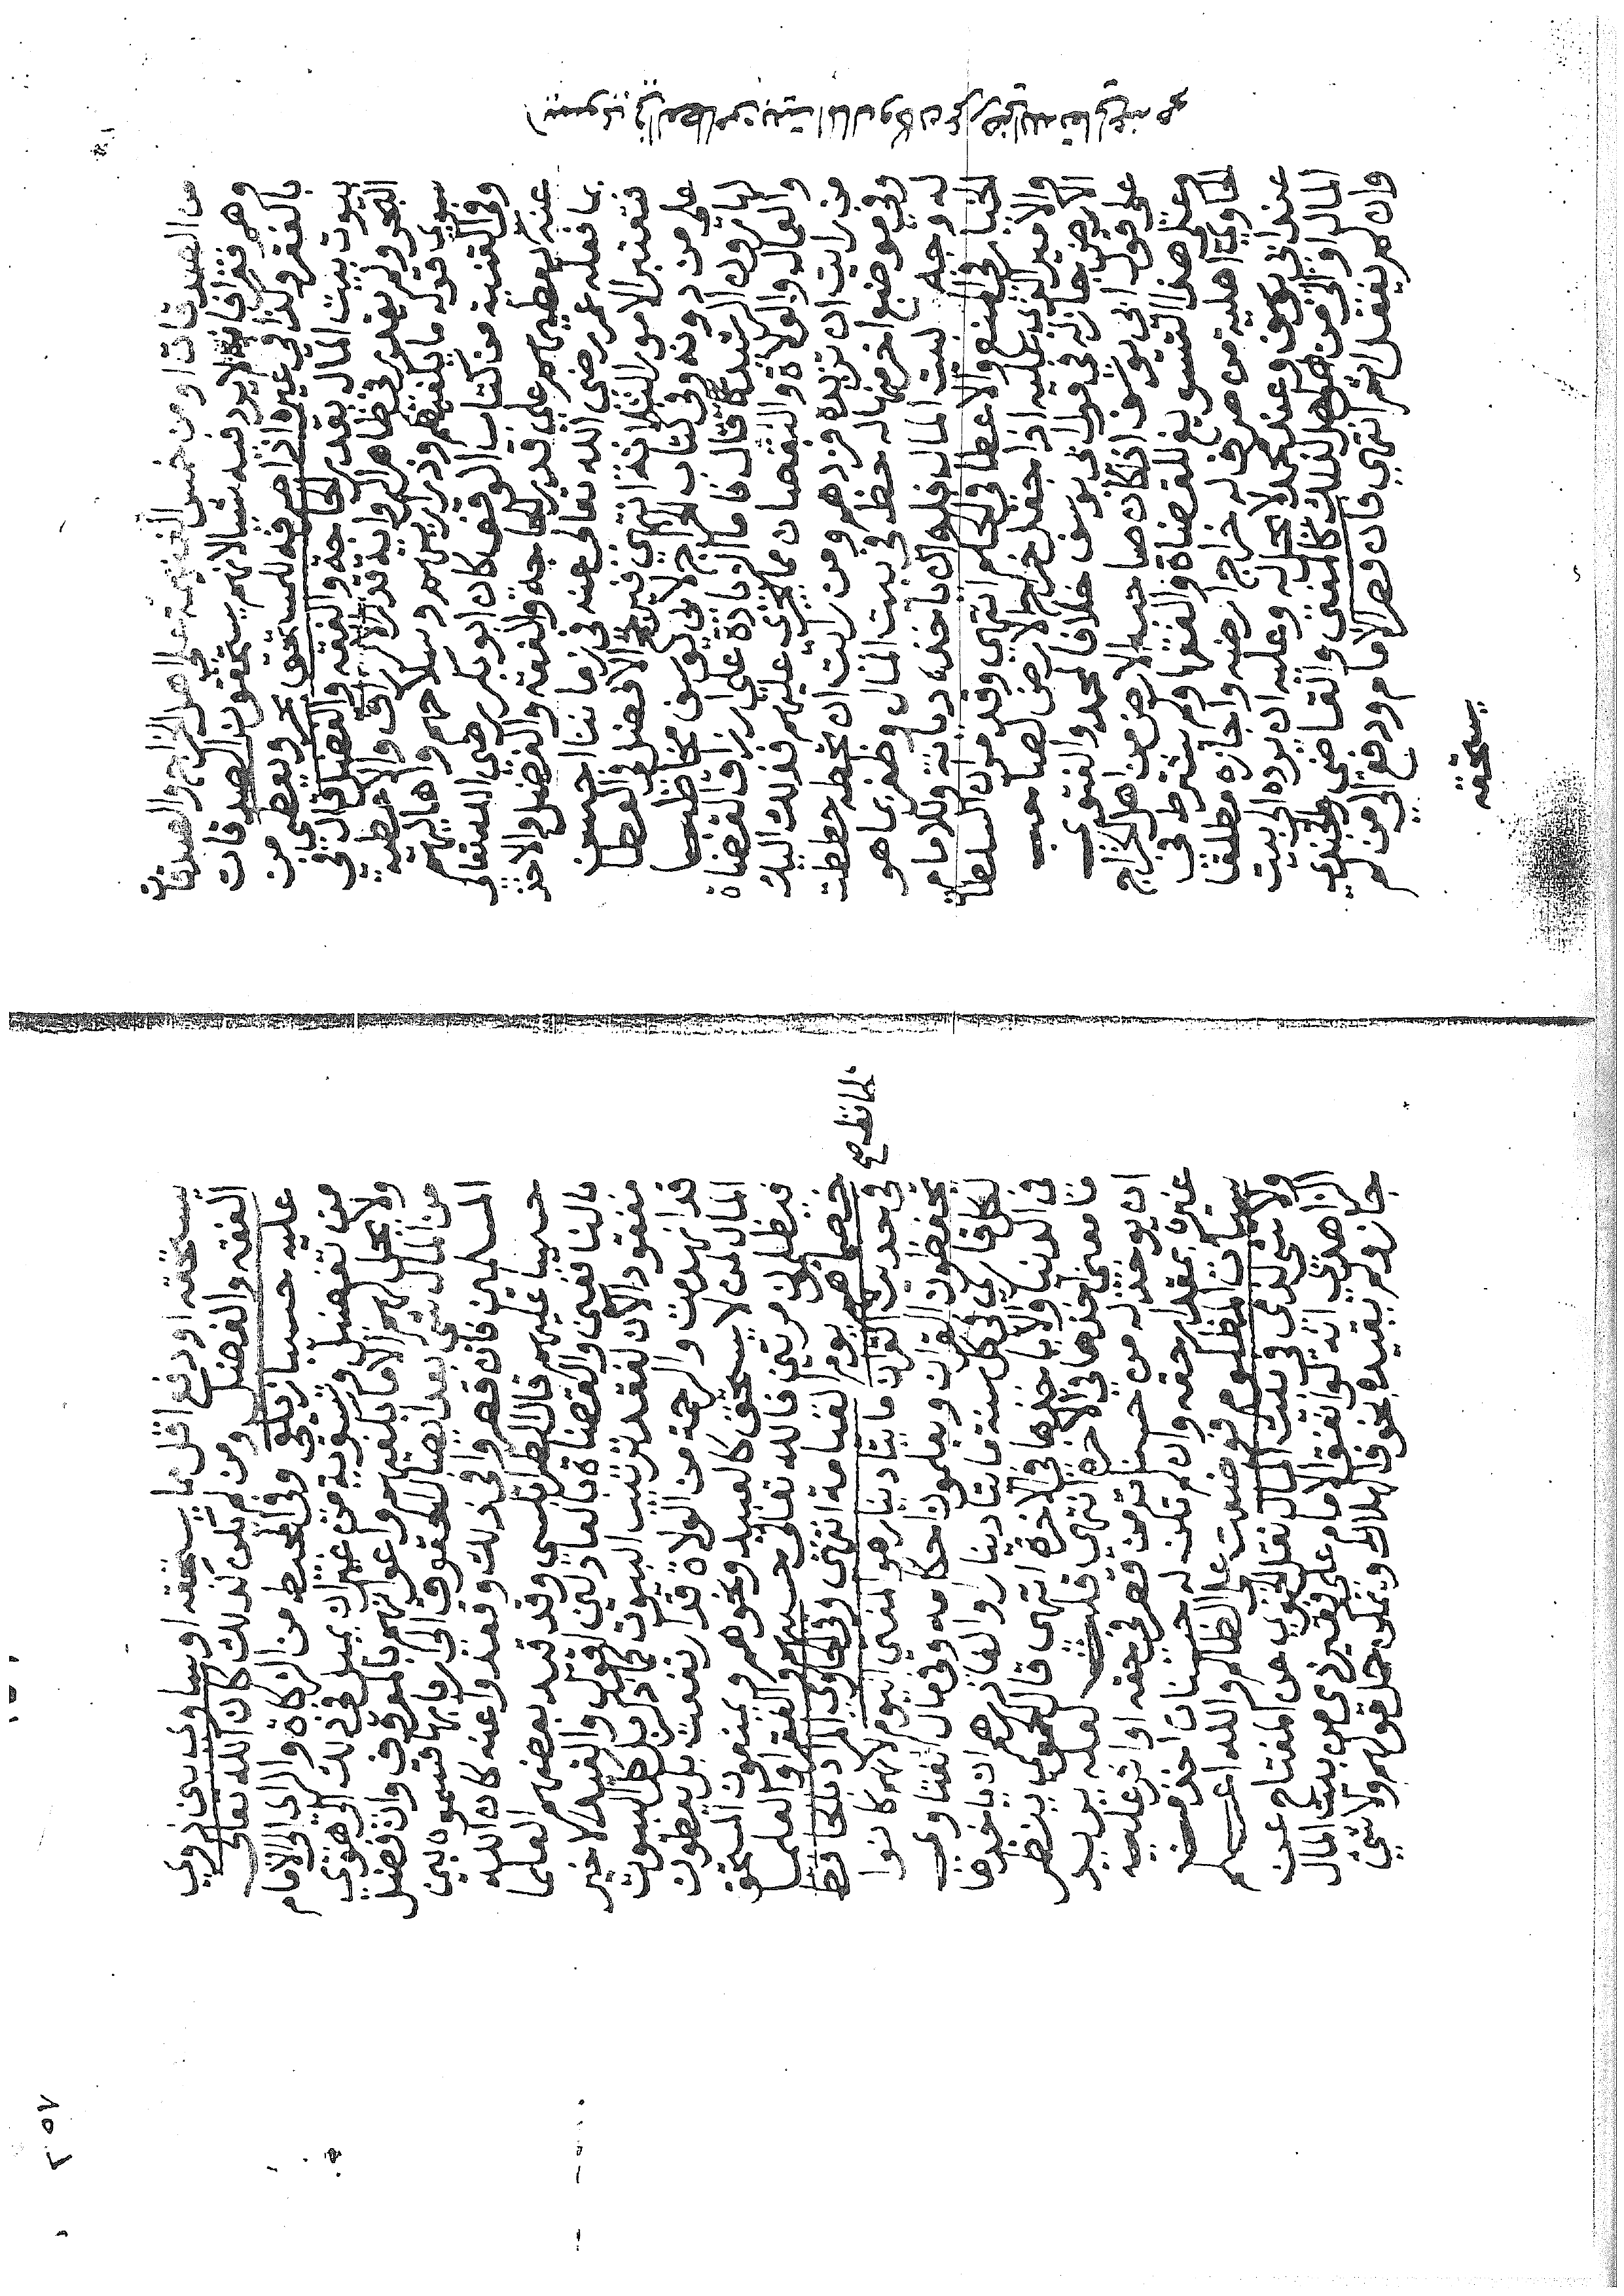 من الصدقات او من خمس الغنيمة على اهل الخراج والصدقات
وهم فقرا فانه لا يرد فيه شيا لانهم يستحقون الصدقات
بالفقر وكذا في غيره اذا صرفه للمستحق بحر ويعطي من
بيوت بيت المال بقدر الحاجة والفقه والفضل قال في
البحر ولم يقدر في ظاهر الرواية قدر الارزاق والاعطية
سوى قوله ما يكفيهم وذراريهم وسلاحهم واهاليهم
وفي القنية من كتاب الوقف كان ابو بكر رضي الله تعالى
عنه يعطيهم على قدر الحاجة والفقه والفضل والاخذ
بما فعله عمر رضي الله تعالى عنه في زماننا احسن
فتعتبر الامور الثلاثة انتهى فيزيد الافضل في العطا
على من دونه وفي كتاب الخراج لابي يوسف مخاطبا
لهارون الرشيد قال فاما الزيادة على ارزاق القضاة
والعمال والولاة والنقصان مما يجري عليهم فذلك اليك
من رايت ان تزيده فزدهم ومن رايت ان تحطه حططت
وفي موضع اخر من له حظ في بيت المال وظفر بما هو
له وجه لبيت المال فله ان ياخذه ديانة وللامام
الخيار في المنع والاعطا في الحكم انتهى وقد مر ان السلطان
والامير اذا جعل خراج الارض لصاحب
الارض جاز له في قول ابي يوسف خلافا لمحمد والفتوى
على قول ابي يوسف اذا كان صاحب الارض من اهل الخراج
وعلى هذا التسويغ للقضاة والفقها ولم يشترط في
الحاوي اهلية من صرف له خراج ارضه واجازه مطلقا
عند ابي يوسف وعند محمد لا يحل له وعليه ان يرده الى بيت
المال او الى من هو اهل لذلك كالمفتي والقاضي والجندي
وان لم يفعل اثم انتهى فان قصر الامام ودفع الى من لم
يستحقه
يستحقه او دفع اقل مما يستحقه او ساوى بين ذوي
الفقه والفضل ومن لم يكن كذلك كان الله تعالى
عليه حسيبا زيلعي وفي المحيط من الزكاة والراي الى الامام
من تفضيل وتسوية من غير ان يميل في ذلك الى هوى
ولا يحل لهم الا ما يكفيهم واعوانهم بالمعروف وان فضل
من المال شي بعد ايصال الحقوق الى اربابها قسموه بين
المسلمين فان قصروا في ذلك وقعدوا عنه كان الله
حسيبا عليهم قال الطرابلسي وقد قيد بعضهم العلما
بالنافعين والقضاة بالعادلين اقول والقيد الاخير
مفقود الان لفقد ترتيب البيوت بل كل البيوت
قد انهدمت والرحمة من الولاة قد ارتفعت بل يعطون
المال لمن لا يستحق كالعبيد ونحوهم ويمنعون المستحق
فيظلمون مرتين فالله تعالى حسيبهم والفقرا والعلما
خصماهم يوم القيامة انتهى وفي الحاوي المراد بالحافظ
في حديث لحافظ القران مايتا دينار هو المفتي اليوم لانهم كانوا
يحفظون القران ويعلمون احكامه وفي مال الفتاوى
لكل قارئ في كل سنة مايتا دينار او الفا درهم ان ياخذها
في الدنيا والا ياخذها في الاخرة انتهى قال الحموي ينظر
ما معنى اخذها في الاخرة انتهى قلت لعله يريد
ان يوخذ له من حسنات من قصر في حقه او اثر عليه
غيره بمقدار حقه وان لم تكن له حسنات اخذ من
سيات المظلوم فوضعت على الظالم والله اعلم
ولا شي لذمي في بيت المال نقل الغزي عن المفتاح عن
الزاهدي انه لو انفق الامام على فقير ذمي من بيت المال
جاز ولم يقيده بخوف الهلاك ويمكن حمل قولهم ولا شي